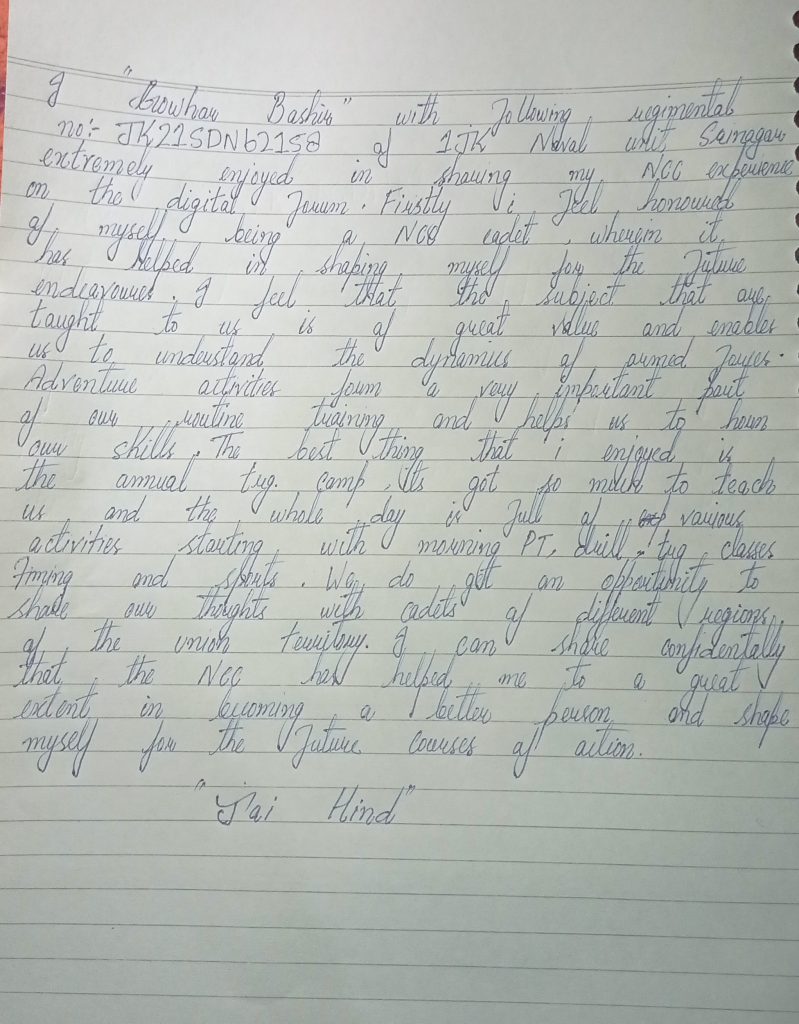 I "Gowhar Bashir" with following regimental
no:- JK21SDN62158 of 1JK Naval unit Srinagar
extremely enjoyed in sharing my NCC experience
on the digital forum. Firstly i feel honoured
of myself being a NCC cadet, wherein it
has helped in shaping myself for the future
endeavoures. I feel that the subject that are
taught to us is of great value and enables
us to understand the dynamics of armed forces.
Adventure activities form a very important part
of our routine training and helps us to horn
our skills. The best thing that i enjoyed is
the annual trg. camp, its got so much to teach
us and the whole day is full of various
activities starting with morning PT, drill, trg classes
firing and sports. We do get an oppertunity to
share our thoughts with cadets of different regions
of the union territory. I can share confidentally
that the NCC has helped me to a great
extent in becoming a better person and shape
myself for the future courses of action.
"Jai Hind"